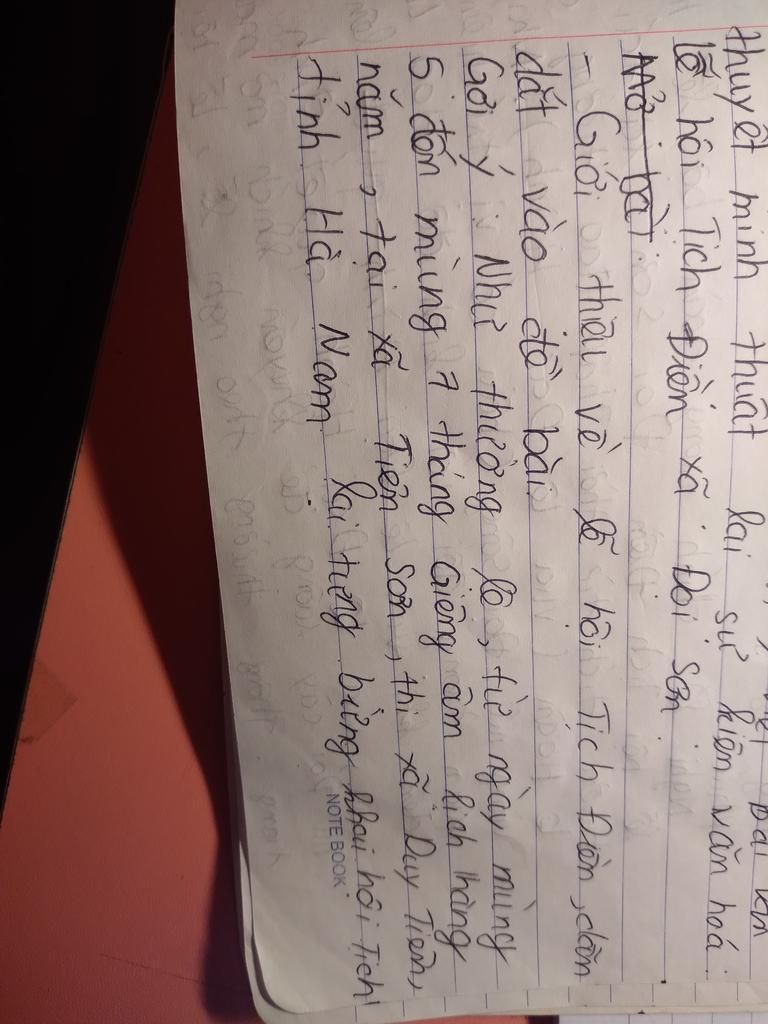 bài văn
thuyết minh thuật lại sự kiện văn hoá
lễ hội Tịch Điền xã Đọi Sơn
Mở bài
- Giới thiệu về lễ hội Tịch Điền, dẫn
dắt vào đề bài
Gợi ý Như thường lệ, từ ngày mùng
5 đến mùng 7 tháng Giêng âm lịch hàng
năm, tại xã Tiên Sơn, thị xã Duy Tiên,
tỉnh Hà Nam lại tưng bừng khai hội Tịch
NOTEBOOK